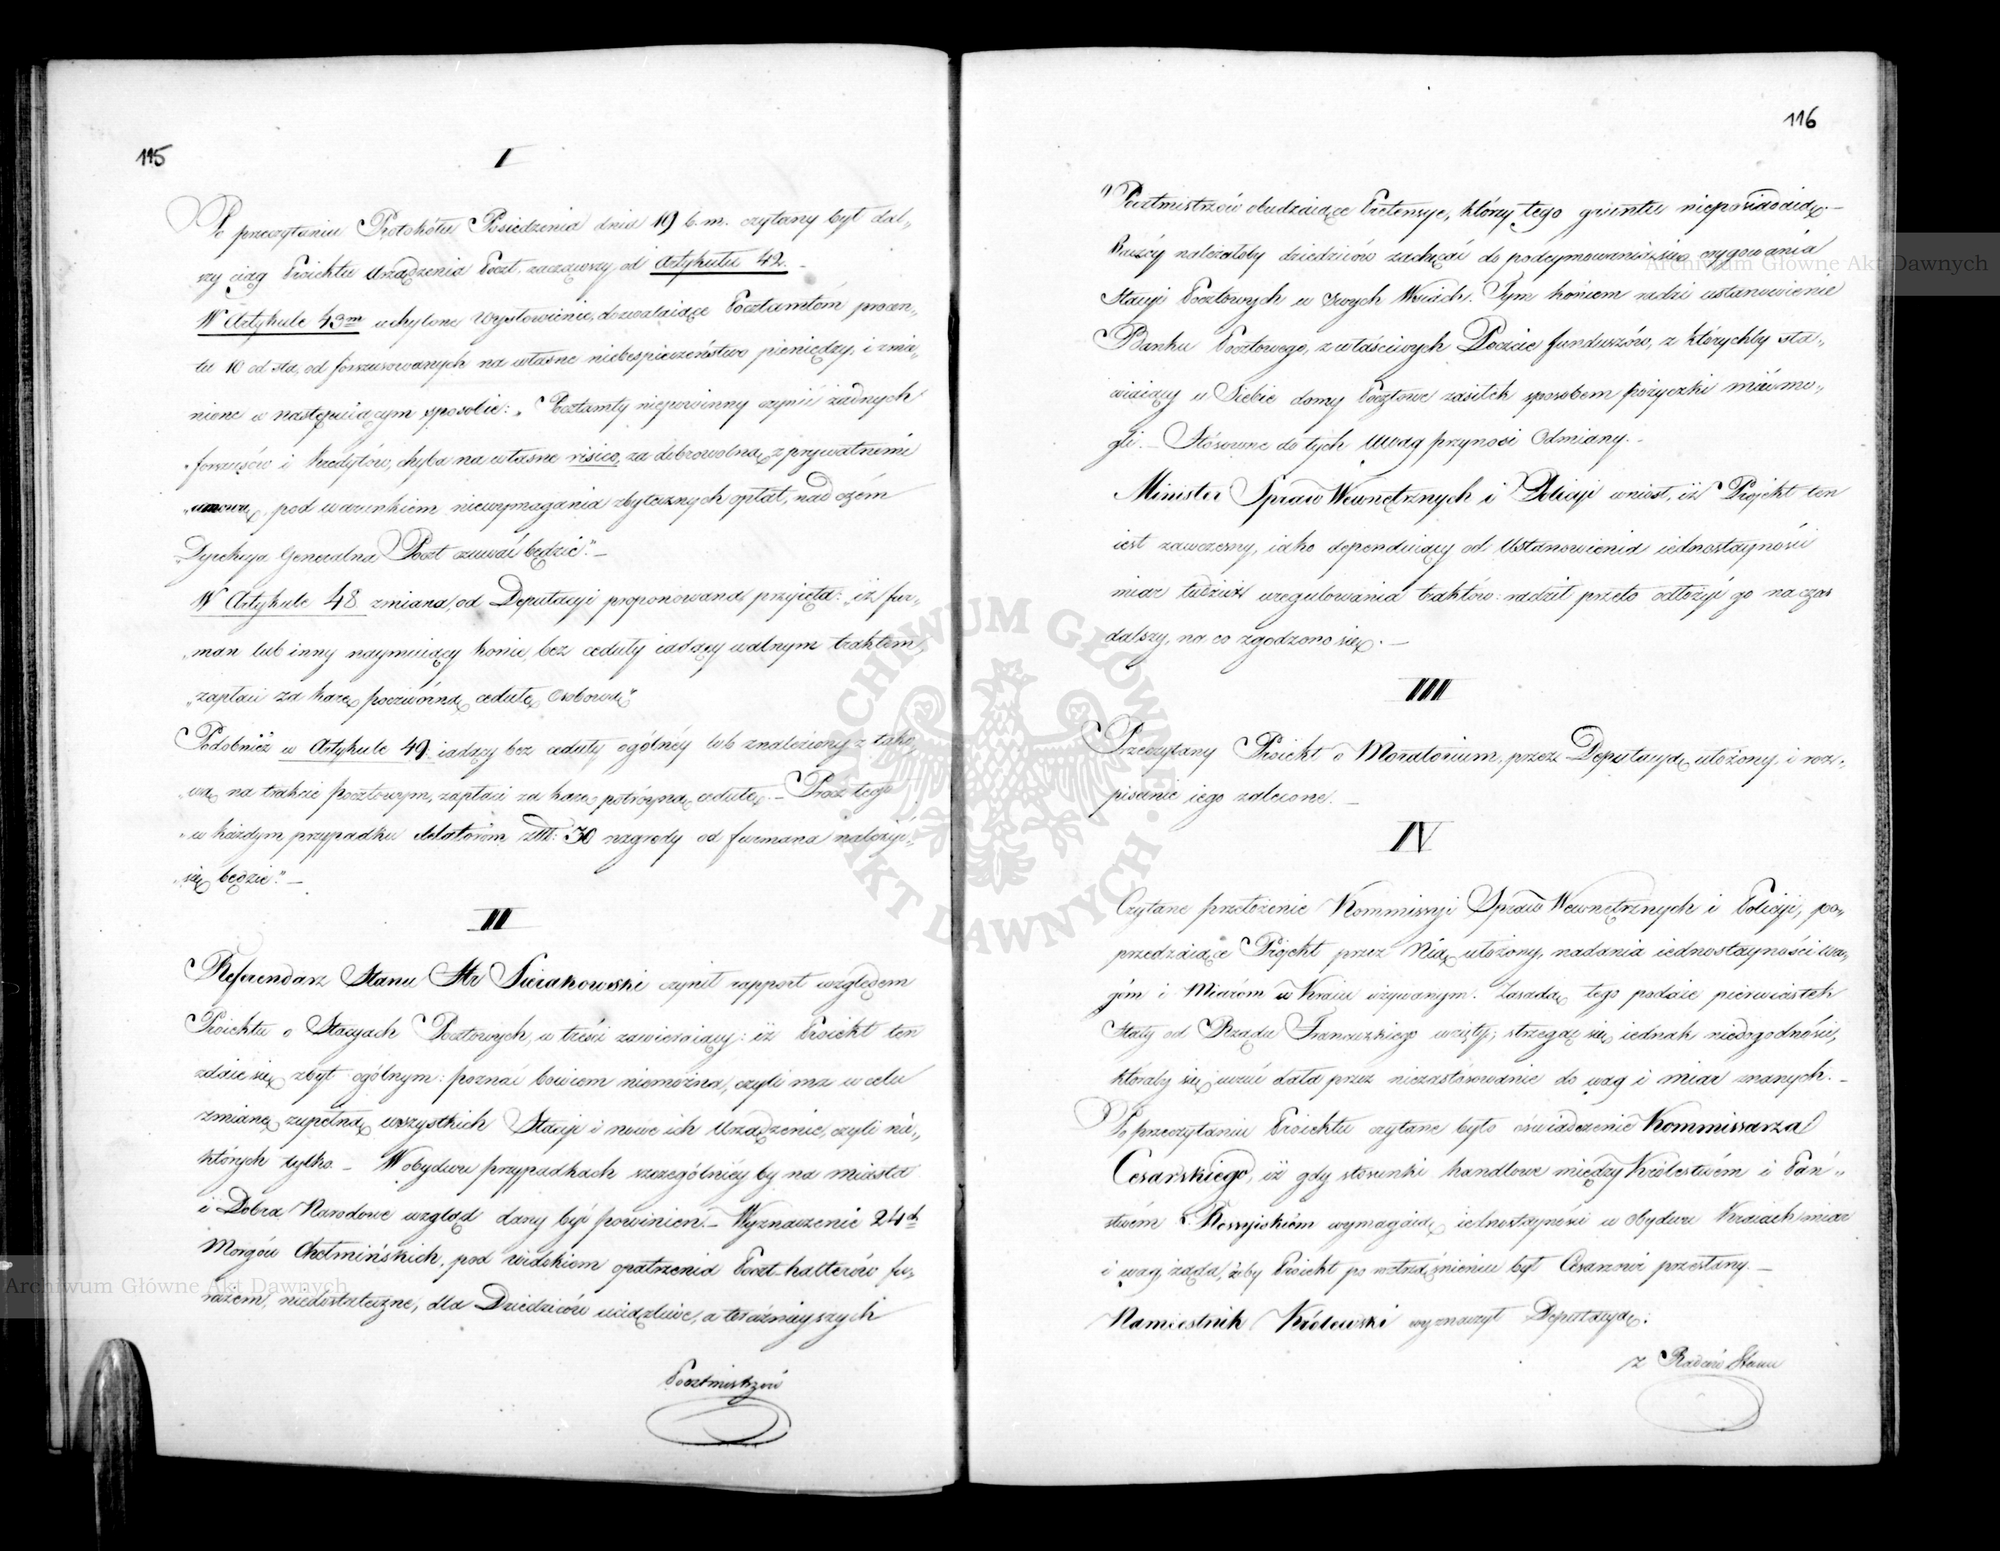 115
I
Po przeczytaniu Protokółu Posiedzenia dnia 19 b. m. czytany był dal-
szy ciąg Proiektu urządzenia Poczt, zacząwszy od Artykułu 42. –
W Artykule 43m uchylone wysłowienie, dozwalaiące Pocztamtóm procen-
tu 10 od sta, od forszusowanych na własne niebespieczeństwo pieniędzy, i zmie-
nione w następuiącym sposobie: „Pocztamty niepowinny czynić żadnych
„forszusów i kredytów, chyba na własne risico, za dobrowolną z prywatnemi
„umową, pod warunkiem niewymagania zbytecznych opłat, nad czém
„Dyrekcya Generalna Poczt czuwać będzie." –
W Artykule 48 zmiana, od Deputacyi proponowana przyięta: „iż fur-
„man lub inny naymuiący konie, bez ceduły iadący walnym traktem
„zapłaci za karę poczwórną cedułę osobową"
Podobnież w Artykule 49. iadący bez ceduły ogólnéy lub znaleziony z tako-
„wą na trakcie pocztowym, zapłaci za karę potróyną cedułę. – Prócz tego
„w każdym przypadku delatorom złł: 30 nagrody od furmana należyć
„się będzie." –
II
Referendarz Stanu Hr Sierakowski czynił rapport względem
Proiektu o Stacyach Pocztowych, w treści zawieraiący: iż Proiekt ten
zdaie się zbyt ogólnym: poznać bowiem niemożna, czyli ma w celu
zmianę zupełną wszystkich Stacyi i nowe ich urządzenie, czyli nie-
których tylko. – W obydwu przypadkach szczególniéy by na miasta
i Dobra Narodowe wzgląd dany być powinien. – Wyznaczenie 24ch
Morgów Chełmińskich, pod widokiem opatrzenia Poczt-halterów fu-
rażem, niedostateczne, dla Dziedziców uciążliwe, a teraźnieyszych
Pocztmistrzów
116
Pocztmistrzów obudzaiące Pretensye, którzy tego gruntu nieposiadaią. –
Raczéy należałoby dziedziców zachęcać do podeymowania się erygowania
Stacyi Pocztowych w swych Wsiach. Tym końcem radzi ustanowienie
Banku Pocztowego, z właściwych Poczcie funduszów, z którychby sta-
wiaiący u Siebie domy Pocztowe zasiłek sposobem pożyczki mieć mo-
gli. – Stosowne do tych uwag przynosi Odmiany. –
Minister Spraw Wewnętrznych i Policyi wniosł, iż Projekt ten
iest zawczesny, iako dependuiący od Ustanowienia iednostayności
miar tudzież uregulowania traktów: radził przeto odłożyć go na czas
dalszy, na co zgodzono się. –
III
Przeczytany Proiekt o Moratorium, przez Deputacyą ułożony i roz-
pisanie iego zalecone. –
IV
Czytane przełożenie Kommissyi Spraw Wewnętrznych i Policyi, po-
przedzaiące Projekt przez Nią ułożony, nadania iednostayności wa-
góm i Miaróm w Kraiu używanym. Zasadę tego podaie pierwiastek
Stały od Rządu Francuzkiego wzięty; strzegąc się iednak niedogodności,
któraby się uczuć dała przez niezastosowanie do wag i miar znanych. –
Po przeczytaniu Proiektu czytane było oświadczenie Kommissarza
Cesarskiego, iż gdy stosunki handlowe między Królestwem i Pań-
stwém Rossyiskiém wymagaią iednostayności w obydwu Kraiach miar
i wag, żąda, żeby Proiekt po roztrząśnieniu był Cesarzowi przesłany. –
Namiestnik Królewski wyznaczył Deputacyą:
z Radców Stanu
ARCHIWUM GŁÓWNE AKT DAWNYCH
Archiwum Główne Akt Dawnych
Archiwum Główne Akt Dawnych